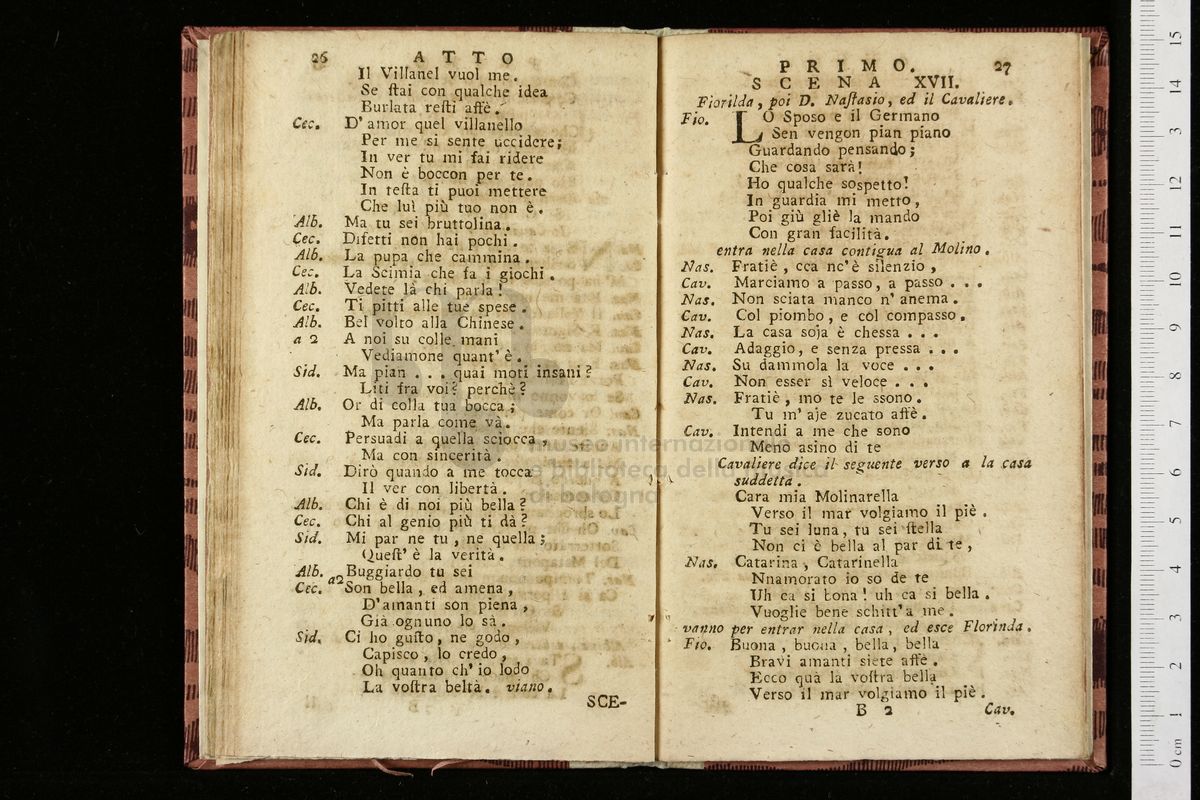 26 A T T O
Il Villanel vuol me.
Se ſtai con qualche idea
Burlata reſti affè.
Cec. D' amor quel villanello
Per me si sente uccidere;
In ver tu mi fai ridere
Non è boccon per te.
In teſta ti puoi mettere
Che lui più tuo non è.
Alb. Ma tu sei bruttolina.
Cec. Difetti non hai pochi.
Alb. La pupa che cammina.
Cec. La Scimia che fa i giochi.
Alb. Vedete là chi parla!
Cec. Ti pitti alle tue spese.
Alb. Bel volto alla Chinese.
a 2 A noi su colle mani
Vediamone quant' è.
Sid. Ma pian . . . quai moti insani?
Liti fra voi? perchè?
Alb. Or di colla tua bocca;
Ma parla come và.
Cec. Persuadi a quella sciocca,
Ma con sincerità.
Sid. Dirò quando a me tocca
Il ver con libertà.
Alb. Chi è di noi più bella?
Cec. Chi al genio più ti dà?
Sid. Mi par ne tu, ne quella;
Queſt' è la verità.
Alb. a2 Buggiardo tu sei
Cec. Son bella, ed amena,
D'amanti son piena,
Già ognuno lo sà.
Sid. Ci ho guſto, ne godo,
Capisco, lo credo,
Oh quanto ch' io lodo
La voſtra beltà. viano.
SCE-
P R I M O. 27
S C E N A XVII.
Fiorilda, poi D. Naſtasio, ed il Cavaliere.
Fio. LO Sposo e il Germano
Sen vengon pian piano
Guardando pensando;
Che cosa sarà!
Ho qualche sospetto!
In guardia mi metto,
Poi giù gliè la mando
Con gran facilità.
entra nella casa contigua al Molino.
Nas. Fratiè, cca nc'è silenzio,
Cav. Marciamo a passo, a passo . . .
Nas. Non sciata manco n' anema.
Cav. Col piombo, e col compasso.
Nas. La casa soja è chessa . . .
Cav. Adaggio, e senza pressa . . .
Nas. Su dammola la voce . . .
Cav. Non esser sì veloce . . .
Nas. Fratiè, mo te le ssono.
Tu m' aje zucato affè.
Cav. Intendi a me che sono
Meno asino di te
Cavaliere dice il seguente verso a la casa
suddetta.
Cara mia Molinarella
Verso il mar volgiamo il piè.
Tu sei luna, tu sei ſtella
Non ci è bella al par di te,
Nas. Catarina, Catarinella
Nnamorato io so de te
Uh ca si bona! uh ca si bella.
Vuoglie bene schitt'a me.
vanno per entrar nella casa, ed esce Florinda.
Fio. Buona, buona, bella, bella
Bravi amanti siete affè.
Ecco quà la voſtra bella
Verso il mar volgiamo il piè.
B 2 Cav.
museo internazionale
e biblioteca della musica
di bologna
0 cm 1 2 3 4 5 6 7 8 9 10 11 12 13 14 15